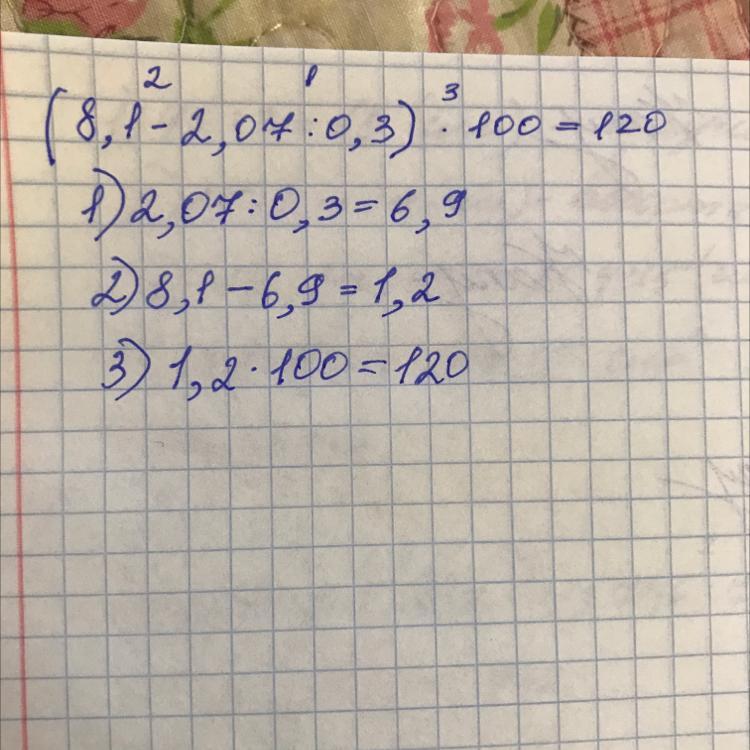 2 1 3
(8,1-2,07:0,3)·100=120
1)2,07:0,3=6,9
2)8,1-6,9=1,2
3)1,2·100=120